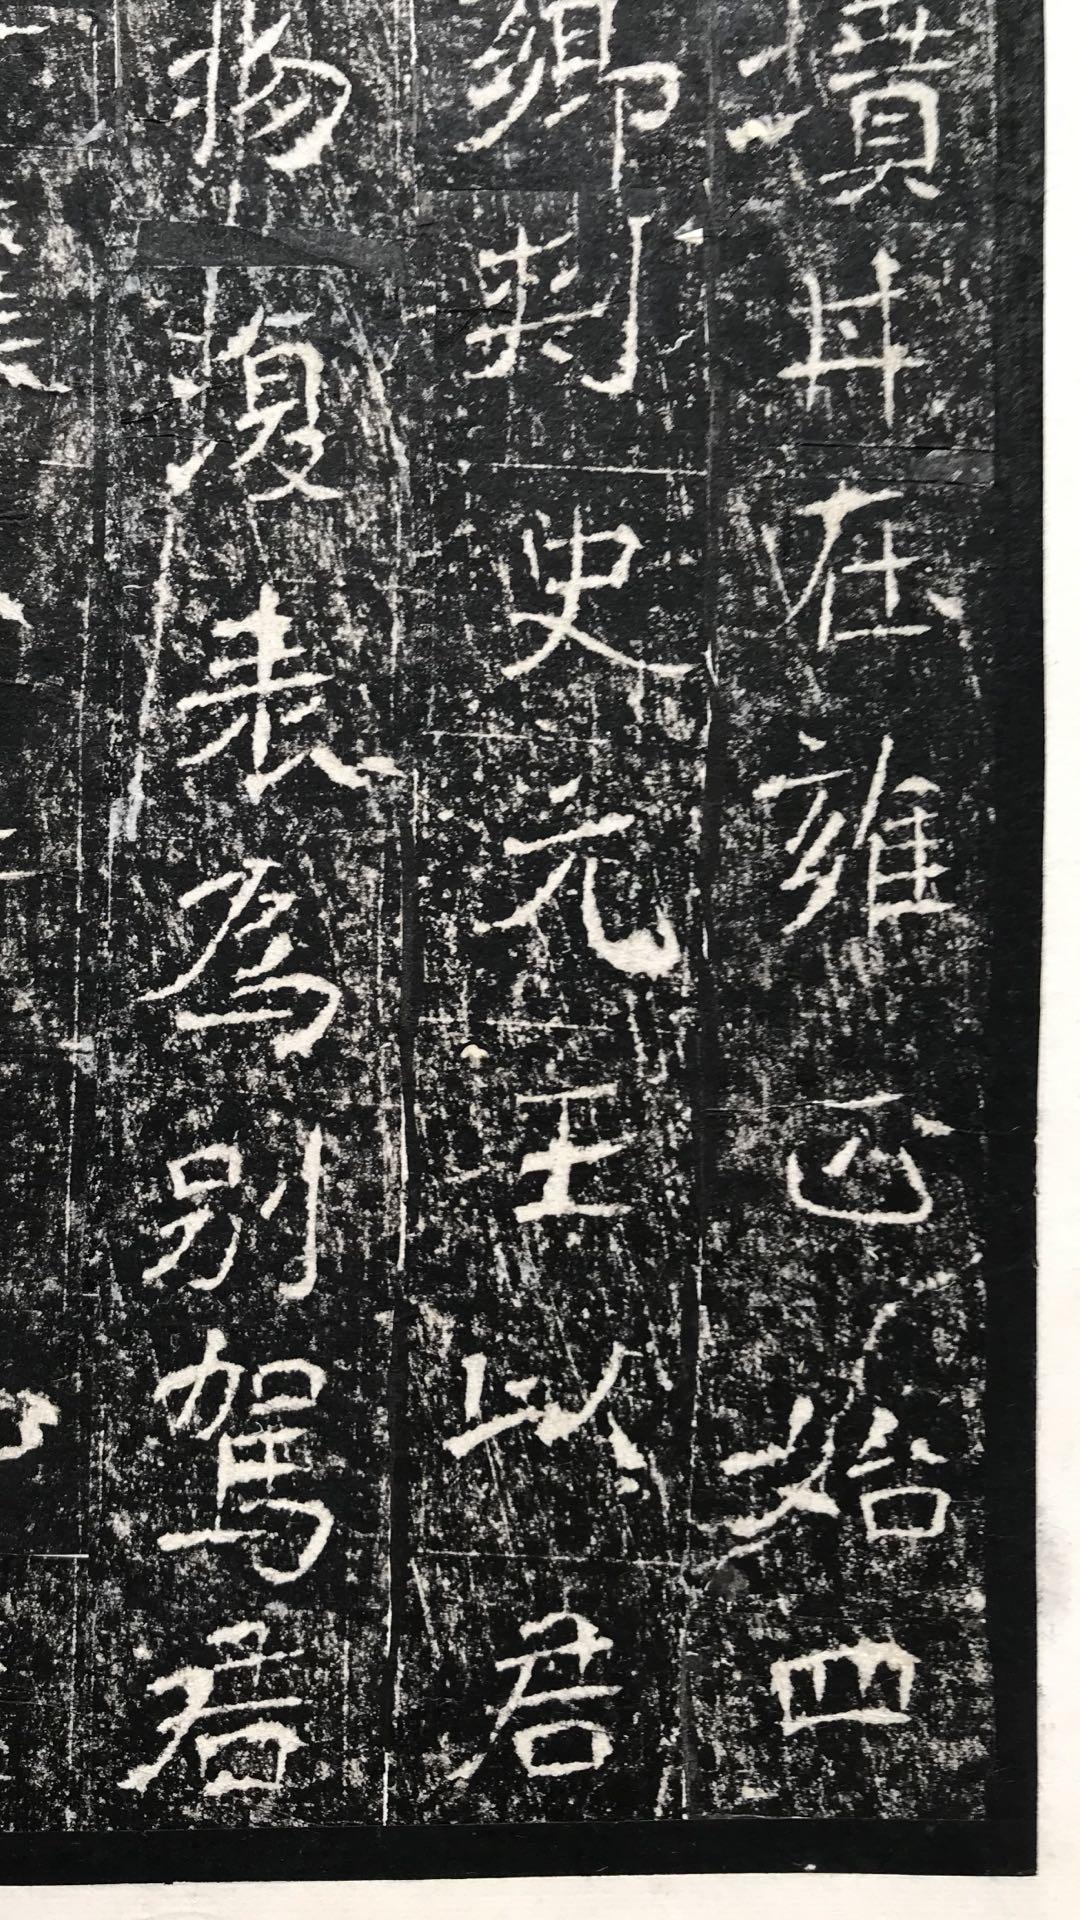 墳井在雍正始四
鄉刺史元王以君
物復表為別駕君